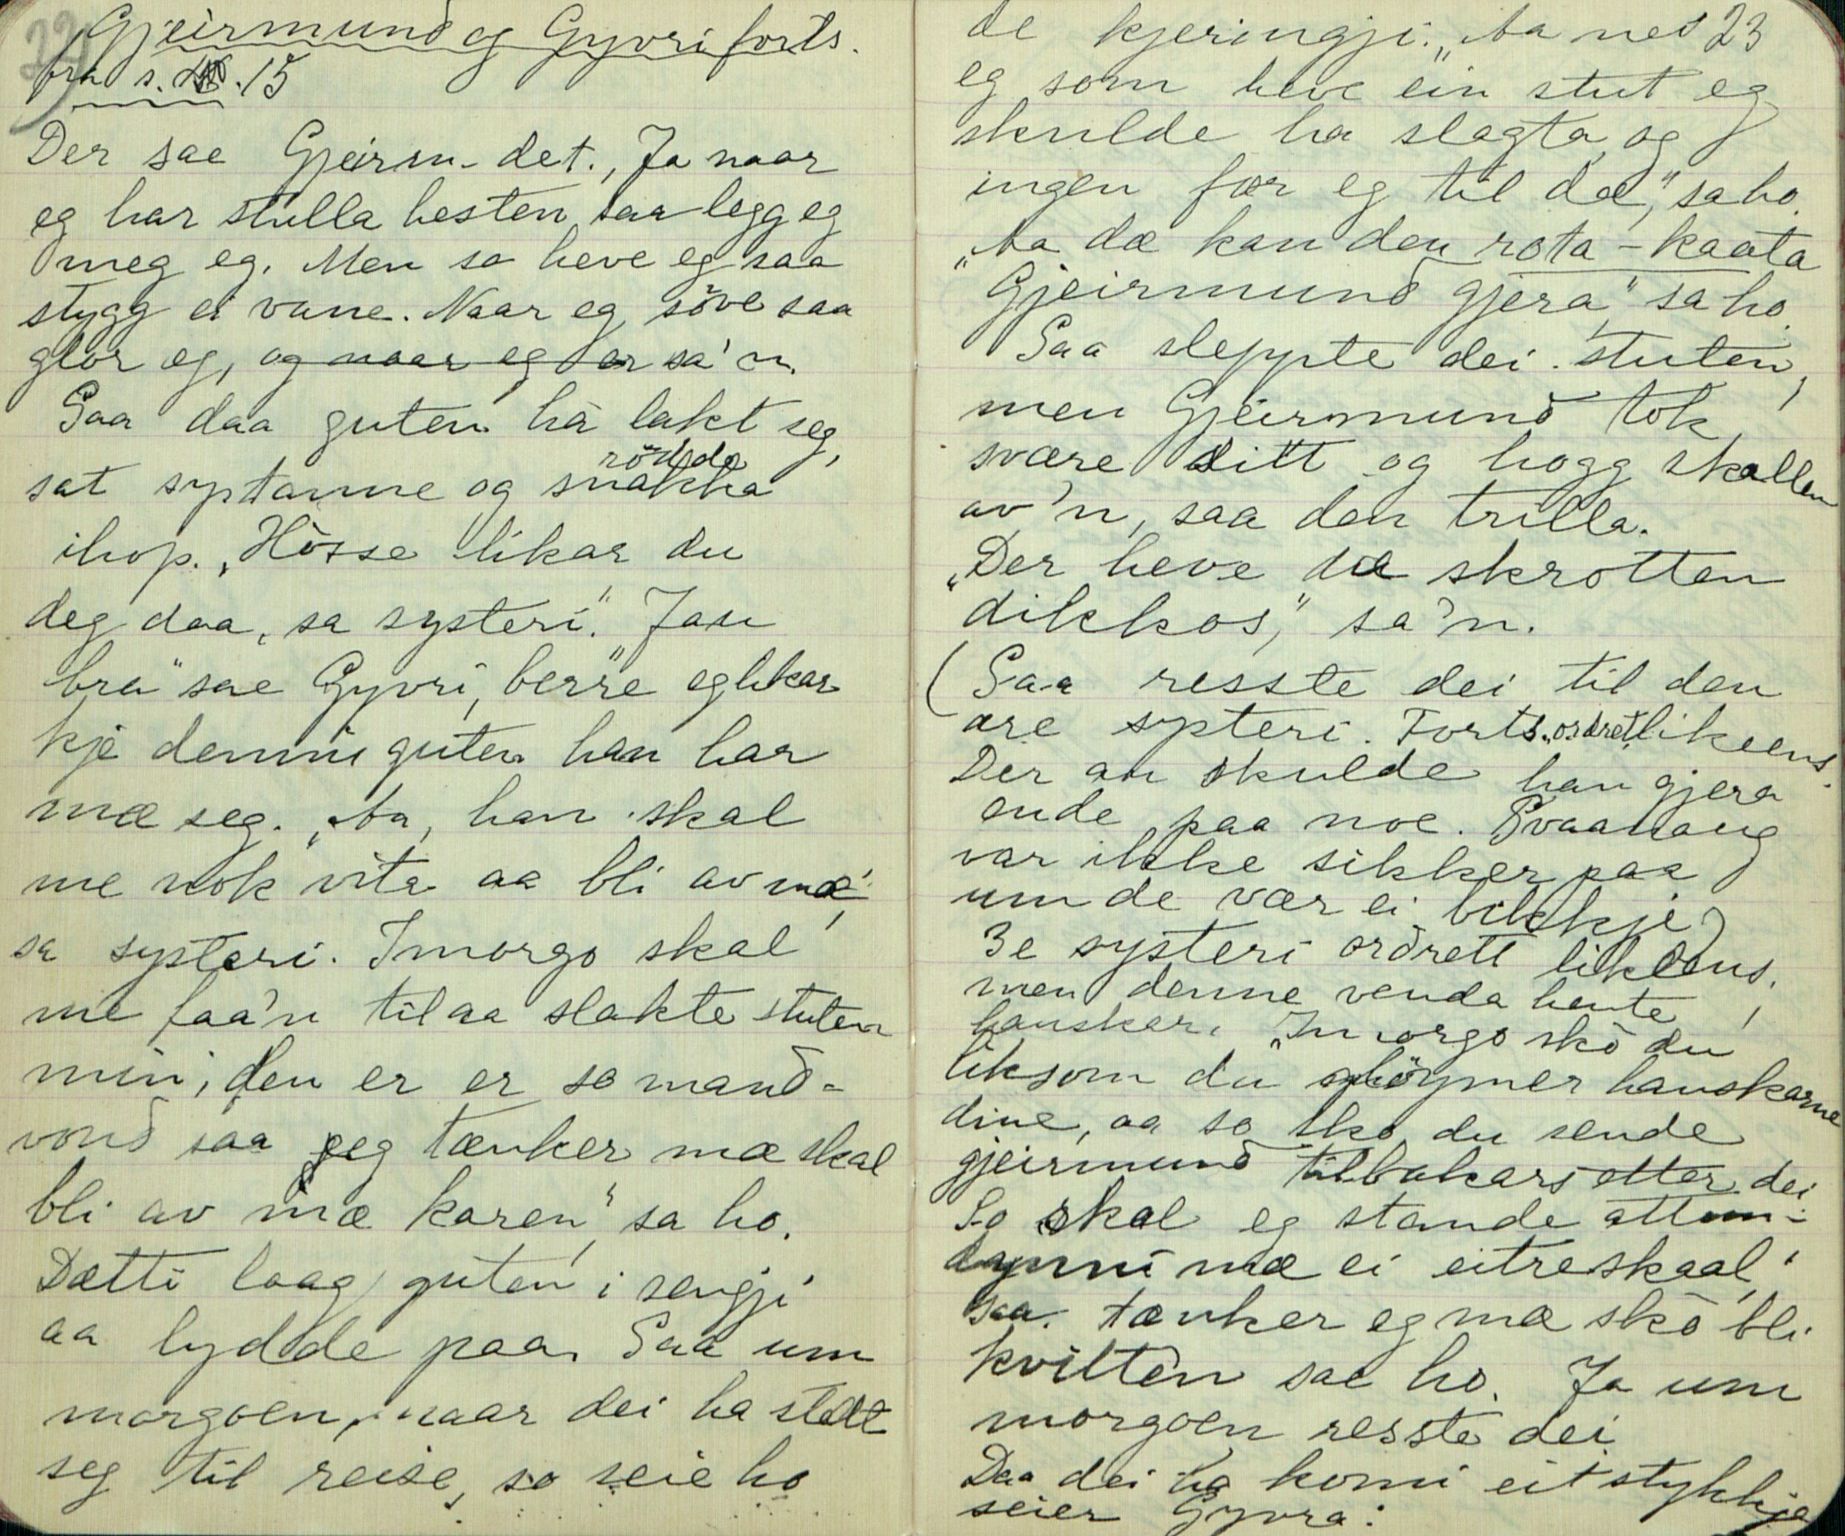 22
Gjeirmund og Gyvri forts.
fra s. 15
Der sae Gjeirm- det. „Ja naar
eg har stulla hesten, saa legg eg
meg eg. Men so heve eg saa
stygg ei vane. Naar eg söve saa
glor eg, og naar eg er sa'n.
Saa daa guten hà lakt seg,
rödda
sat systanne og snakka
ihop. „Hösse likar du
deg daa, sa systeri." „Jau
bra" sae Gyvri, „berre eg likar
kje denni guten han har
mæ seg. „Aa, han skal
me nok vita aa bli av mæ",
sa systeri. Imorgo skal
me faa'n til aa slakte stuten
min, den er er so mand-
vond saa jeg tænker mæ skal
bli av mæ karen", sa ho.
Dætti laag guten i sengji
aa lydde paa. Saa um
morgoen, naar dei ha stelt
seg til reise, so seie ho
de kjeringji: „Aa ned 23
eg som heve ein stut eg
skulde ha slagta og
ingen fær eg til dæ," sa ho.
„Aa dæ kan den rota-kaata
Gjeirmund gjera," sa ho.
Saa sleppte dei stuten,
men Gjeirmund tok
svære sitt og hogg skallen
av'n, saa den trilla.
„Der heve dæ skrotten
dikkos," sa'n.
(Saa resste dei til den
are systeri. Forts. „ordrett" likeens.
Der an skulde han gjera
ende paa noe. Svaanaug
var ikke sikker paa
um de vær ei bikkje)
3e systeri ordrett likeens,
men denne venda hente
hansker. „Imorgo skò du
liksom du glöymer hanskarne
dine, aa so sko du sende
gjeirmund tilbakars etter dei
So skal eg stande attum-
dynni mæ ei eitreskaal,
saa tænker eg mæ skò bli
kvitten sae ho. Ja um
morgoen resste dei
Daa dei ha komi eit stykkje
seier Gyvra: